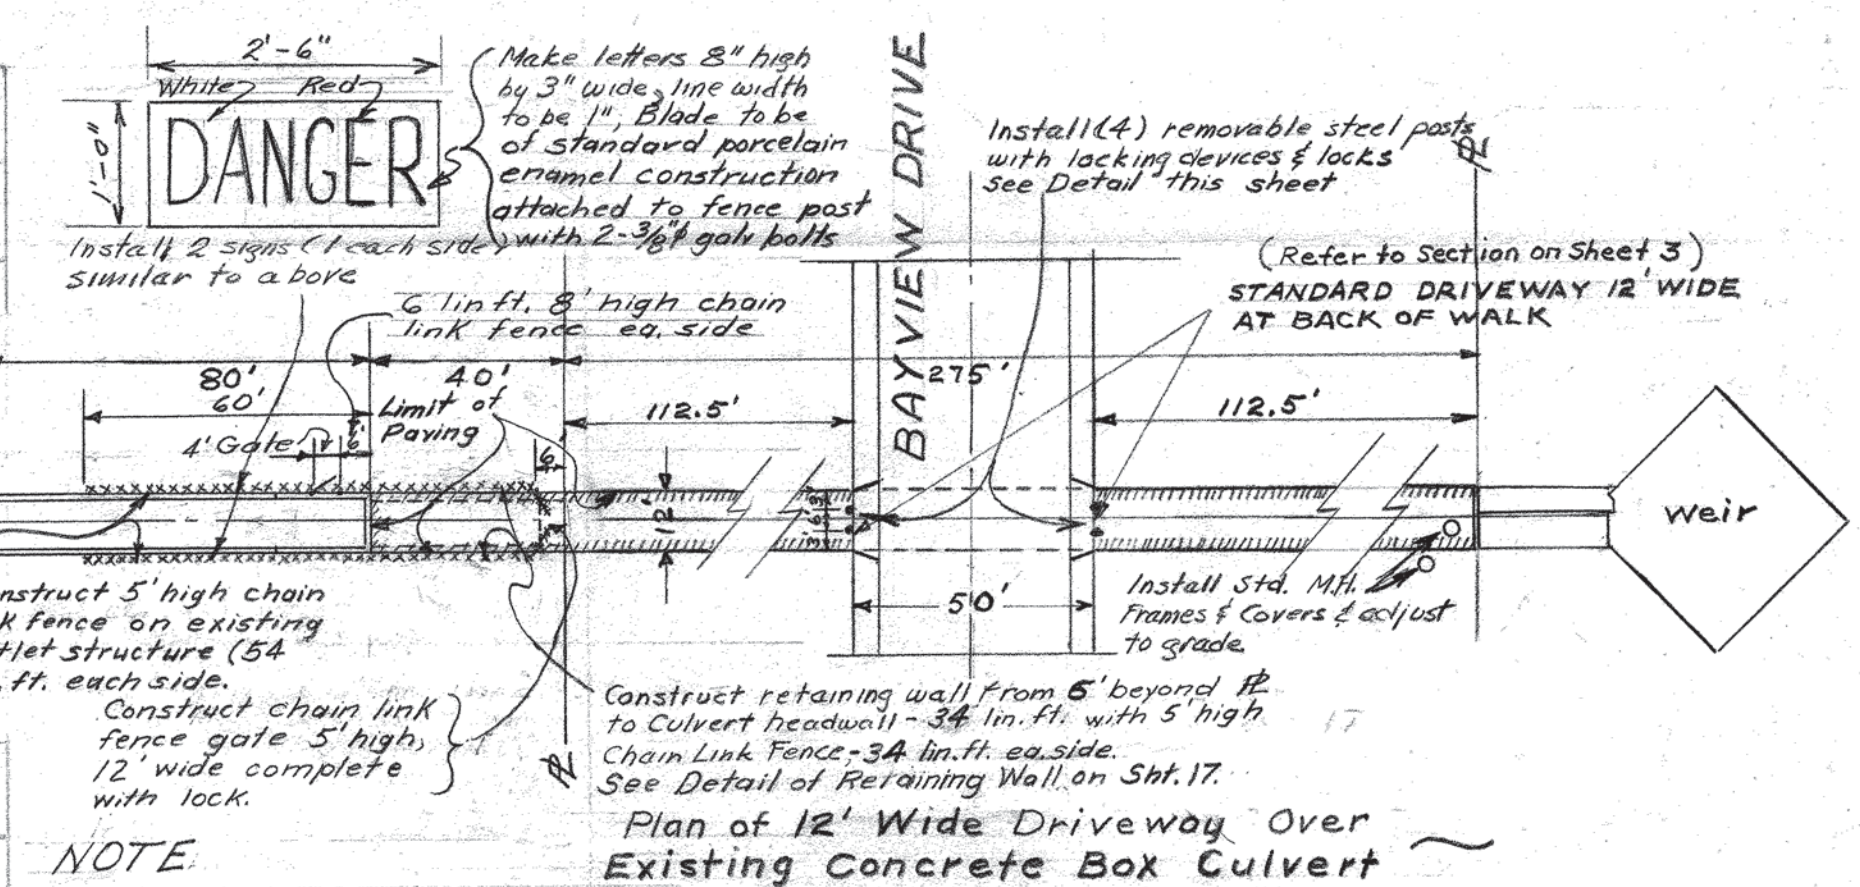 2'-6"
White Red
1'-0"
DANGER
Make letters 8" high
by 3" wide, line width
to be 1", Blade to be
of standard porcelain
enamel construction
attached to fence post
with 2-3/8"ϕ galv bolts
Install 2 signs (1 each side)
similar to above
6 lin ft. 8' high chain
link fence ea. side
BAYVIEW DRIVE
Install (4) removable steel posts
with locking devices & locks
See Detail this sheet
PL
(Refer to Section on Sheet 3)
STANDARD DRIVEWAY 12' WIDE
AT BACK OF WALK
80'
40'
275'
60'
112.5'
112.5'
Limit of
Paving
4' Gate
6'
6'
12'
3' 6' 3'
50'
weir
Install Std. M.H.
Frames & Covers & adjust
to grade.
nstruct 5' high chain
k fence on existing
tlet structure (54
. ft. each side.
Construct chain link
fence gate 5' high,
12' wide complete
with lock.
PL
Construct retaining wall from 6' beyond PL
to Culvert headwall - 34 lin. ft. with 5' high
Chain Link Fence, - 34 lin. ft. ea. side.
See Detail of Retaining Wall on Sht. 17.
17
Plan of 12' Wide Driveway Over
Existing Concrete Box Culvert
NOTE